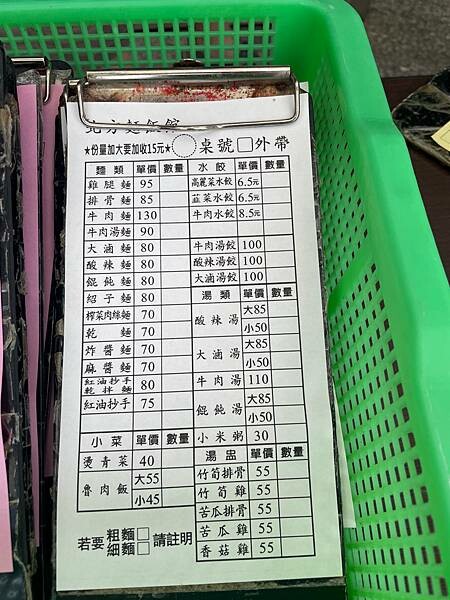 北方麵飯館
★份量加大要加收15元★ 桌號 □外帶
麵類 單價 數量
雞腿麵 95
排骨麵 85
牛肉麵 130
牛肉湯麵 90
大滷麵 80
酸辣麵 80
餛飩麵 80
紹子麵 80
榨菜肉絲麵 70
乾麵 70
炸醬麵 70
麻醬麵 70
紅油抄手乾拌麵 80
紅油抄手 75
小菜 單價 數量
燙青菜 40
魯肉飯 大55
小45
若要 粗麵□ 細麵□ 請註明
水餃 單價 數量
高麗菜水餃 6.5元
韮菜水餃 6.5元
牛肉水餃 8.5元
牛肉湯餃 100
酸辣湯餃 100
大滷湯餃 100
湯類 單價 數量
酸辣湯 大85
小50
大滷湯 大85
小50
牛肉湯 110
餛飩湯 大85
小50
小米粥 30
湯盅 單價 數量
竹筍排骨 55
竹筍雞 55
苦瓜排骨 55
苦瓜雞 55
香菇雞 55